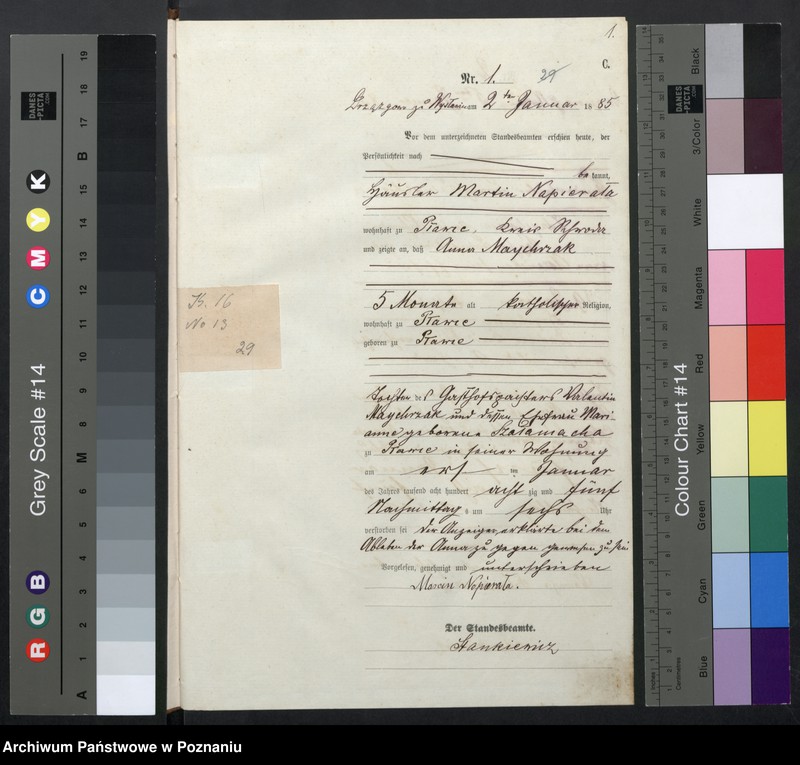 1.
C.
Nr. 1. 29
am 2ten Januar 1885
Vor dem unterzeichneten Standesbeamten erschien heute, der
Persönlichkeit nach
be kannt,
Häusler Martin Napierała
wohnhaft zu Pławce, Kreis Schroda
und zeigte an, daß Anna Maychrzak
5 Monate alt katholischer Religion,
wohnhaft zu Pławce
geboren zu Pławce
Tochter des Gasthofspächters Valentin
Maychrzak und dessen Ehefrau Mari-
anne geborene Szałamacha
zu Pławce in seiner Wohnung
am ersten Januar
des Jahres tausend acht hundert acht zig und fünf
Nachmittags um sechs Uhr
verstorben sei der Anzeiger erklärte bei dem
Ableben der Anna zu gegen gewesen zu sein
Vorgelesen, genehmigt und unterschrieben
Marcin Napierała.
Der Standesbeamte.
Stankiewicz
K. 16
No 13
29
Grey Scale #14
DANES
-PICTA
.COM
A 1 2 3 4 5 6 M 8 9 10 11 12 13 14 15 B 17 18 19
R G B
C M Y K
Colour Chart #14
DANES
-PICTA
.COM
Blue Cyan Green Yellow Red Magenta White 3/Color Black
Inches
Centimetres
Archiwum Państwowe w Poznaniu